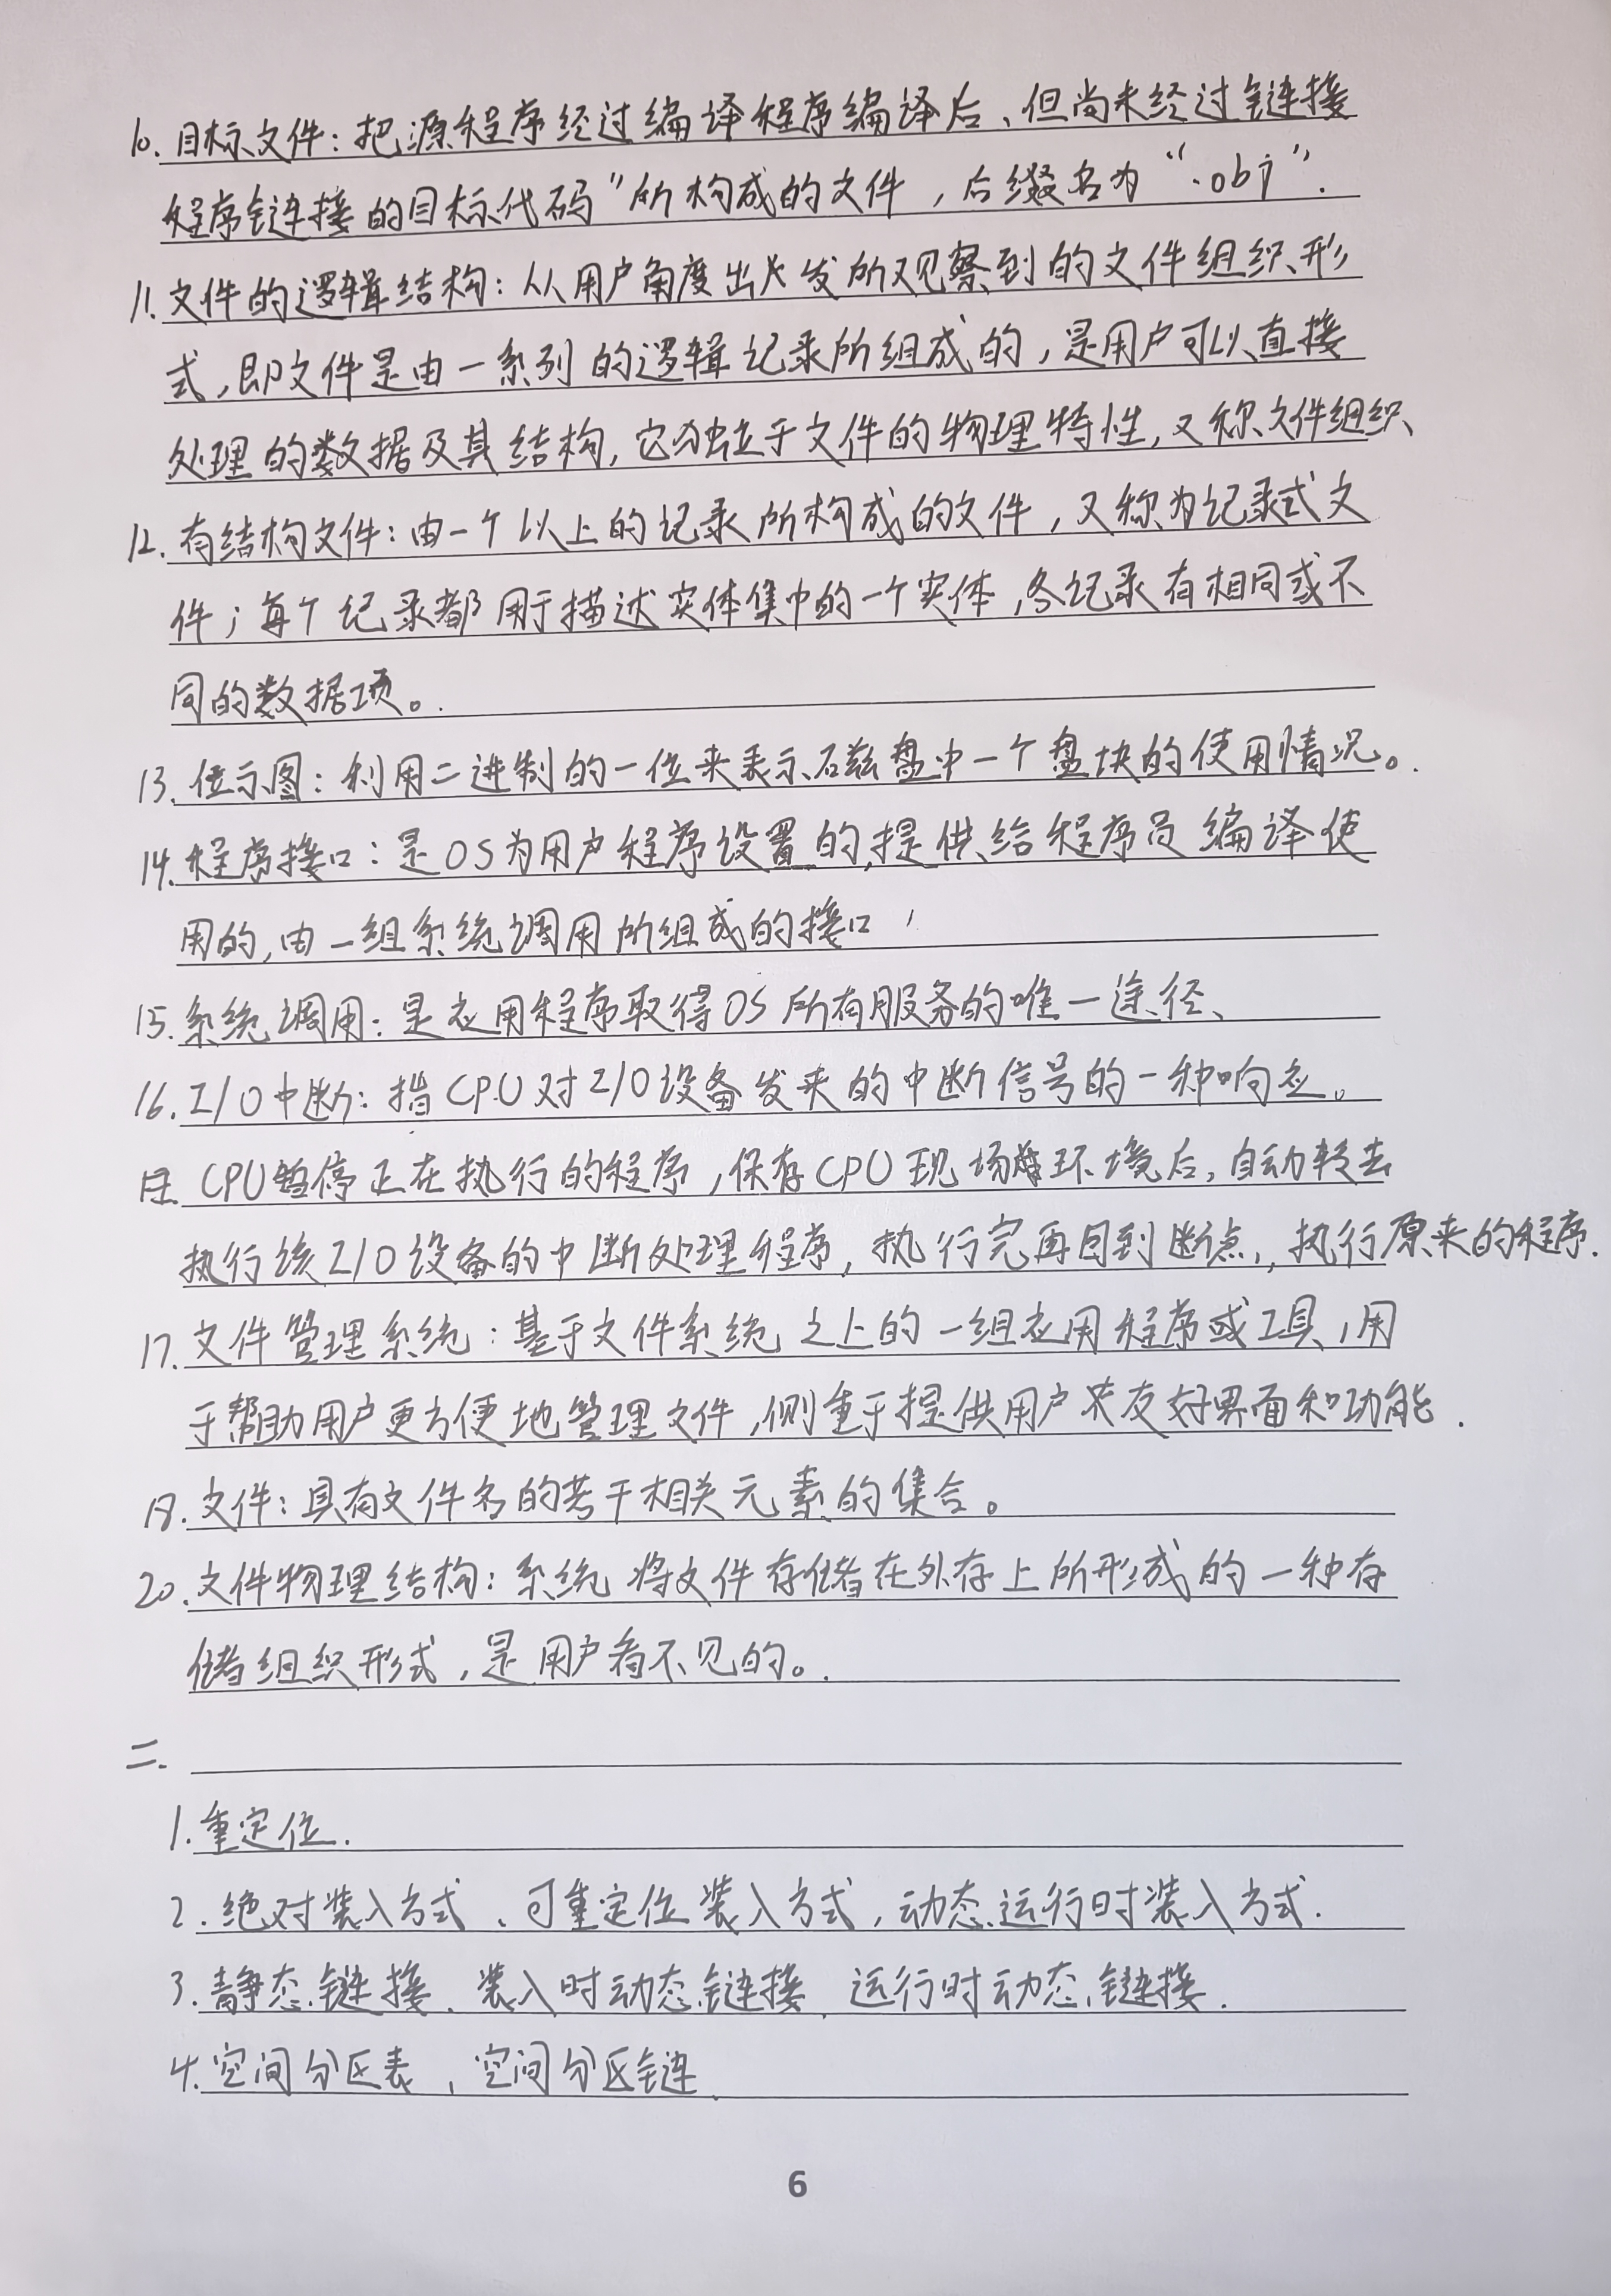 10. 目标文件：把源程序经过编译程序编译后、但尚未经过链接
程序链接的目标代码”所构成的文件，后缀名为“.obj”.
11. 文件的逻辑结构：从用户角度出发所观察到的文件组织形
式，即文件是由一系列的逻辑记录所组成的，是用户可以直接
处理的数据及其结构，它独立于文件的物理特性，又称文件组织、
12. 有结构文件：由一个以上的记录所构成的文件，又称为记录式文
件；每个记录都用于描述实体集中的一个实体，各记录有相同或不
同的数据项。.
13. 位示图：利用二进制的一位来表示磁盘中一个盘块的使用情况。.
14. 程序接口：是OS为用户程序设置的,提供给程序员编译使
用的,由一组系统调用所组成的接口，
15. 系统调用：是应用程序取得OS所有服务的唯一途径、
16. I/O中断：指CPU对I/O设备发来的中断信号的一种响应。
CPU暂停正在执行的程序，保存CPU现场环境后，自动转去
执行该I/O设备的中断处理程序，执行完再回到断点，执行原来的程序.
17. 文件管理系统：基于文件系统之上的一组应用程序或工具，用
于帮助用户更方便地管理文件，侧重于提供用户友好界面和功能.
18. 文件：具有文件名的若干相关元素的集合。
20. 文件物理结构：系统将文件存储在外存上所形成的一种存
储组织形式，是用户看不见的。.
二.
1. 重定位.
2. 绝对装入方式、可重定位装入方式，动态运行时装入方式.
3. 静态链接、装入时动态链接、运行时动态链接.
4. 空间分区表，空间分区链.
6